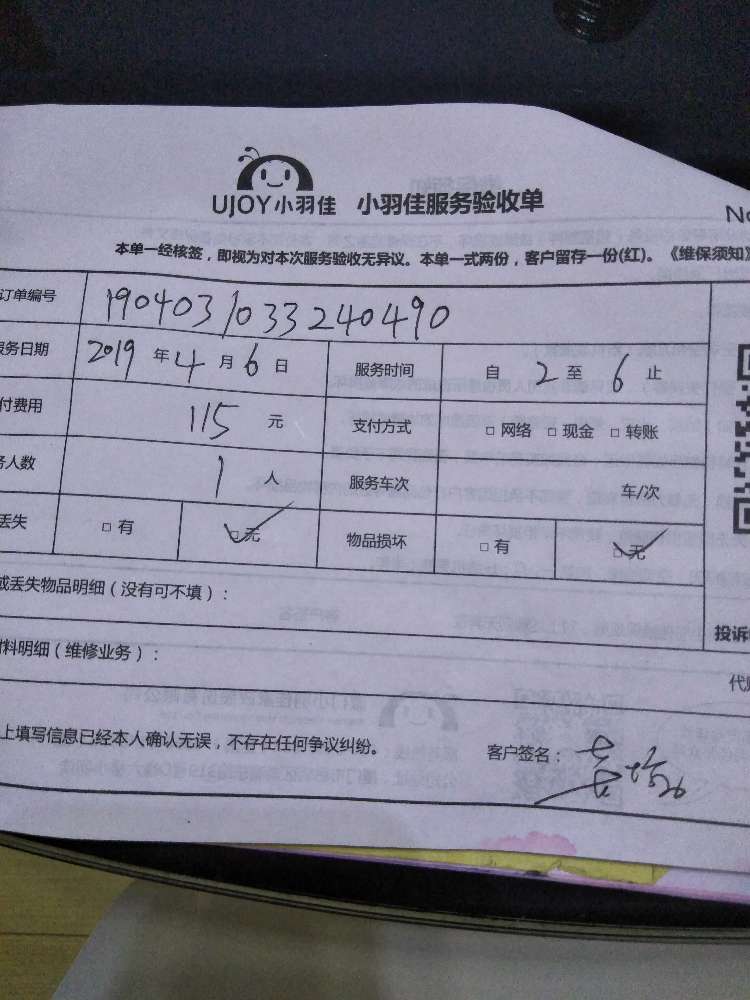 UJOY小羽佳 小羽佳服务验收单
No
本单一经核签，即视为对本次服务验收无异议。本单一式两份，客户留存一份(红)。《维保须知》
订单编号 1904031033240490
服务日期 2019 年 4 月 6 日 服务时间 自 2 至 6 止
付费用 115 元 支付方式 □ 网络 □ 现金 □ 转账
务人数 1 人 服务车次 车/次
丢失 □ 有 □ 无 物品损坏 □ 有 □ 无
或丢失物品明细（没有可不填）：
材料明细（维修业务）：
投诉
上填写信息已经本人确认无误，不存在任何争议纠纷。 客户签名：